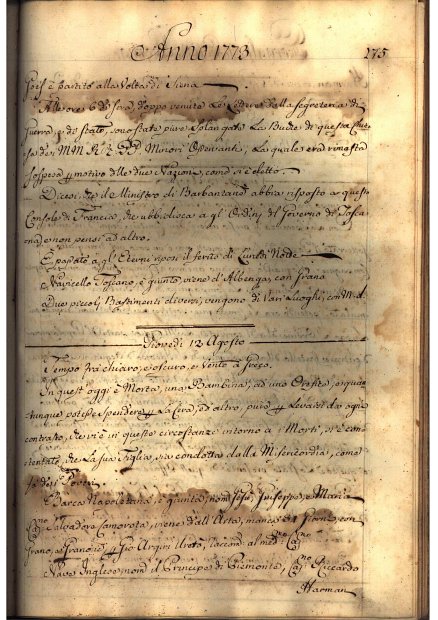 Anno 1773
275
è partito alla Volta di Siena
Alle ore 6 di sera, doppo venute le Lettere della Segreteria di
Guerra, di stato, sono state pure La Bucie di questa
de MM. Minori Osservanti, La quale era rimasta
sospesa motivo delle due Nazioni, come si è detto.
Dicesi, che il Ministro di Barbantane abbia risposto a questo
Console di Francia, che ubbidisca a gl'Ordini del Governo di Tosca
na, e non pensi ad altro.
È passato a gl'Eterni riposi il ferito di Lunedì Notte
Navicello Toscano, è giunto, viene d'Albenga, con Grano
Due piccoli Bastimenti diversi, vengono di Vari Luoghi, con
Giovedì 12 Agosto
Tempo frà chiaro, e scuro, e Vento à Greco.
In quest'oggi è Morta, una Bambina, ad uno Orefice, e quan
tunque potesse spendere La Cera, ed altro, pure Levarsi da ogni
contrasto, che vi è in queste circostanze intorno a i Morti, si è con
tentato, che La sua Figlia, sia condotta dalla Misericordia, come
Poveri
Barca Napoletana, è giunta, nom. Gesù, Giuseppe, e Maria
Salvadore viene dell' manca 34 Giorni, con
Grano, Gio
Nave Inglese, nom. il Principe di Piemonte, Riccardo
Harman